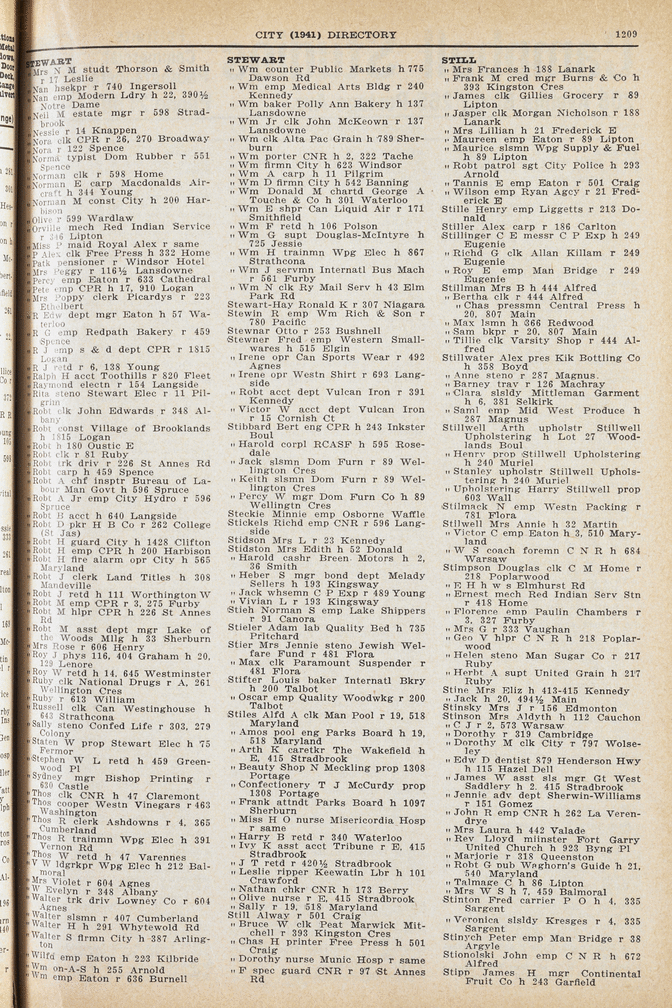 CITY (1941) DIRECTORY
1209
STEWART
" Mrs N M studt Thorson & Smith
r 17 Leslie
" Nan hsekpr r 740 Ingersoll
" Nan emp Modern Ldry h 22, 390½
Notre Dame
" Neil M estate mgr r 598 Strad-
brook
" Nessie r 14 Knappen
" Nora clk CPR r 26, 270 Broadway
" Nora r 122 Spence
" Norma typist Dom Rubber r 551
Spence
" Norman clk r 598 Home
" Norman E carp Macdonalds Air-
craft h 344 Young
" Norman M const City h 200 Har-
bison
" Olive r 599 Wardlaw
" Orville mech Red Indian Service
r 346 Lipton
" Miss P maid Royal Alex r same
" P Alex clk Free Press h 332 Home
" Patk pensioner r Windsor Hotel
" Mrs Peggy r 116½ Lansdowne
" Percy emp Eaton r 633 Cathedral
" Pete emp CPR h 17, 910 Logan
" Mrs Poppy clerk Picardys r 223
Ethelbert
" R Edw dept mgr Eaton h 57 Wa-
terloo
" R G emp Redpath Bakery r 459
Spence
" R J emp s & d dept CPR r 1815
Logan
" R J retd r 6, 138 Young
" Ralph H acct Toothills r 820 Fleet
" Raymond electn r 154 Langside
" Rita steno Stewart Elec r 11 Pil-
grim
" Robt clk John Edwards r 348 Al-
bany
" Robt const Village of Brooklands
h 1815 Logan
" Robt h 180 Oustic E
" Robt clk r 81 Ruby
" Robt trk driv r 226 St Annes Rd
" Robt carp h 459 Spence
" Robt A chf insptr Bureau of La-
bour Man Govt h 596 Spruce
" Robt A Jr emp City Hydro r 596
Spruce
" Robt B acct h 640 Langside
" Robt D pkr H B Co r 262 College
(St Jas)
" Robt H guard City h 1428 Clifton
" Robt H emp CPR h 200 Harbison
" Robt H fire alarm opr City h 565
Maryland
" Robt J clerk Land Titles h 308
Mandeville
" Robt J retd h 111 Worthington W
" Robt M emp CPR r 3, 275 Furby
" Robt M hlpr CPR h 226 St Annes
Rd
" Robt M asst dept mgr Lake of
the Woods Mllg h 33 Sherburn
" Mrs Rose r 606 Henry
" Roy J phys 116, 404 Graham h 20,
129 Lenore
" Roy W retd h 14, 645 Westminster
" Ruby clk National Drugs r A, 261
Wellington Cres
" Ruby r 613 William
" Russell clk Can Westinghouse h
643 Strathcona
" Sally steno Confed Life r 303, 279
Colony
" Staten W prop Stewart Elec h 75
Fermor
" Stephen W L retd h 459 Green-
wood Pl
" Sydney mgr Bishop Printing r
630 Castle
" Thos clk CNR h 47 Claremont
" Thos cooper Westn Vinegars r 463
Washington
" Thos R clerk Ashdowns r 4, 365
Cumberland
" Thos R trainmn Wpg Elec h 391
Vernon Rd
" Thos W retd h 47 Varennes
" V W ldgrkpr Wpg Elec h 212 Bal-
moral
" Mrs Violet r 604 Agnes
" W Evelyn r 348 Albany
" Walter trk driv Lowney Co r 604
Agnes
" Walter slsmn r 407 Cumberland
" Walter H h 291 Whytewold Rd
" Walter S firmn City h 387 Arling-
ton
" Wilfd emp Eaton h 223 Kilbride
" Wm on-A-S h 255 Arnold
" Wm emp Eaton r 636 Burnell
STEWART
" Wm counter Public Markets h 775
Dawson Rd
" Wm emp Medical Arts Bldg r 240
Kennedy
" Wm baker Polly Ann Bakery h 137
Lansdowne
" Wm Jr clk John McKeown r 137
Lansdowne
" Wm clk Alta Pac Grain h 789 Sher-
burn
" Wm porter CNR h 2, 322 Tache
" Wm firmn City h 623 Windsor
" Wm A carp h 11 Pilgrim
" Wm D firmn City h 542 Banning
" Wm Donald M chartd George A
Touche & Co h 301 Waterloo
" Wm E shpr Can Liquid Air r 171
Smithfield
" Wm F retd h 106 Polson
" Wm G supt Douglas-McIntyre h
725 Jessie
" Wm H trainmn Wpg Elec h 867
Strathcona
" Wm J servmn Internatl Bus Mach
r 561 Furby
" Wm N clk Ry Mail Serv h 43 Elm
Park Rd
Stewart-Hay Ronald K r 307 Niagara
Stewin R emp Wm Rich & Son r
780 Pacific
Stewnar Otto r 253 Bushnell
Stewner Fred emp Western Small-
wares h 515 Elgin
" Irene opr Can Sports Wear r 492
Agnes
" Irene opr Westn Shirt r 693 Lang-
side
" Robt acct dept Vulcan Iron r 391
Kennedy
" Victor W acct dept Vulcan Iron
r 15 Cornish Ct
Stibbard Bert eng CPR h 243 Inkster
Boul
" Harold corpl RCASF h 595 Rose-
dale
" Jack slsmn Dom Furn r 89 Wel-
lington Cres
" Keith slsmn Dom Furn r 89 Wel-
lington Cres
" Percy W mgr Dom Furn Co h 89
Wellingtn Cres
Steckie Minnie emp Osborne Waffle
Stickels Richd emp CNR r 596 Lang-
side
Stidson Mrs L r 23 Kennedy
Stidston Mrs Edith h 52 Donald
" Harold cashr Breen Motors h 2,
36 Smith
" Heber S mgr bond dept Melady
Sellers h 193 Kingsway
" Jack whsemn C P Exp r 489 Young
" Vivian L r 193 Kingsway
Stieh Norman S emp Lake Shippers
r 91 Canora
Stieler Adam lab Quality Bed h 735
Pritchard
Stier Mrs Jennie steno Jewish Wel-
fare Fund r 481 Flora
" Max clk Paramount Suspender r
481 Flora
Stifter Louis baker Internatl Bkry
h 200 Talbot
" Oscar emp Quality Woodwkg r 200
Talbot
Stiles Alfd A clk Man Pool r 19, 518
Maryland
" Amos pool eng Parks Board h 19,
518 Maryland
" Arth K caretkr The Wakefield h
E, 415 Stradbrook
" Beauty Shop N Meckling prop 1308
Portage
" Confectionery T J McCurdy prop
1308 Portage
" Frank attndt Parks Board h 1097
Sherburn
" Miss H O nurse Misericordia Hosp
r same
" Harry B retd r 340 Waterloo
" Ivy K asst acct Tribune r E, 415
Stradbrook
" J T retd r 420½ Stradbrook
" Leslie ripper Keewatin Lbr h 101
Crawford
" Nathan chkr CNR h 173 Berry
" Olive nurse r E, 415 Stradbrook
" Sally r 19, 518 Maryland
Still Alway r 501 Craig
" Bruce W clk Peat Marwick Mit-
chell r 393 Kingston Cres
" Chas H printer Free Press h 501
Craig
" Dorothy nurse Munic Hosp r same
" F spec guard CNR r 97 St Annes
Rd
STILL
" Mrs Frances h 188 Lanark
" Frank M cred mgr Burns & Co h
393 Kingston Cres
" James clk Gillies Grocery r 89
Lipton
" Jasper clk Morgan Nicholson r 188
Lanark
" Mrs Lillian h 21 Frederick E
" Maureen emp Eaton r 89 Lipton
" Maurice slsmn Wpg Supply & Fuel
h 89 Lipton
" Robt patrol sgt City Police h 293
Arnold
" Tannis E emp Eaton r 501 Craig
" Wilson emp Ryan Agcy r 21 Fred-
erick E
Stille Henry emp Liggetts r 213 Do-
nald
Stiller Alex carp r 186 Carlton
Stillinger C E messr C P Exp h 249
Eugenie
" Richd G clk Allan Killam r 249
Eugenie
" Roy E emp Man Bridge r 249
Eugenie
Stillman Mrs B h 444 Alfred
" Bertha clk r 444 Alfred
" Chas pressmn Central Press h
20, 807 Main
" Max lsmn h 366 Redwood
" Sam bkpr r 20, 807 Main
" Tillie clk Varsity Shop r 444 Al-
fred
Stillwater Alex pres Kik Bottling Co
h 358 Boyd
" Anne steno r 287 Magnus
" Barney trav r 126 Machray
" Clara slsldy Mittleman Garment
h 6, 381 Selkirk
" Saml emp Mid West Produce h
287 Magnus
Stillwell Arth upholstr Stillwell
Upholstering h Lot 27 Wood-
lands Boul
" Henry prop Stillwell Upholstering
h 240 Muriel
" Stanley upholstr Stillwell Uphols-
tering h 240 Muriel
" Upholstering Harry Stillwell prop
603 Wall
Stilmack N emp Westn Packing r
781 Flora
Stilwell Mrs Annie h 32 Martin
" Victor C emp Eaton h 3, 510 Mary-
land
" W S coach foremn C N R h 684
Warsaw
Stimpson Douglas clk C M Home r
218 Poplarwood
" E H h w s Elmhurst Rd
" Ernest mech Red Indian Serv Stn
r 418 Home
" Florence emp Paulin Chambers r
3, 327 Furby
" Mrs G r 333 Vaughan
" Geo V hlpr C N R h 218 Poplar-
wood
" Helen steno Man Sugar Co r 217
Ruby
" Herbt A supt United Grain h 217
Ruby
Stine Mrs Eliz h 413-415 Kennedy
" Jack h 20, 494½ Main
Stinsky Mrs J r 156 Edmonton
Stinson Mrs Aldyth h 112 Cauchon
" C J r 2, 573 Warsaw
" Dorothy r 319 Cambridge
" Dorothy M clk City r 797 Wolse-
ley
" Edw D dentist 879 Henderson Hwy
h 115 Hazel Dell
" James W asst sls mgr Gt West
Saddlery h 2, 415 Stradbrook
" Jennie adv dept Sherwin-Williams
r 151 Gomez
" John R emp CNR h 262 La Veren-
drye
" Mrs Laura h 442 Valade
" Rev Lloyd minster Fort Garry
United Church h 923 Byng Pl
" Marjorie r 318 Queenston
" Robt G pub Waghorn's Guide h 21,
540 Maryland
" Talmage C h 86 Lipton
" Mrs W S h 7, 459 Balmoral
Stinton Fred carrier P O h 4, 335
Sargent
" Veronica slsldy Kresges r 4, 335
Sargent
Stinych Peter emp Man Bridge r 38
Argyle
Stionolski John emp C N R h 672
Alfred
Stipp James H mgr Continental
Fruit Co h 243 Garfield